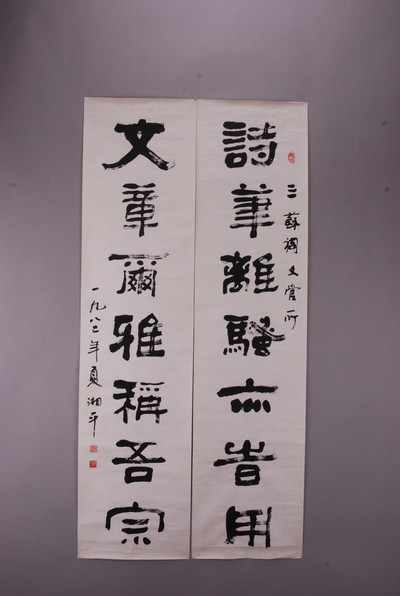 三蘇祠文管所
詩筆離騷亦旹用
文章爾雅稱吾宗
一九八二年夏湘平